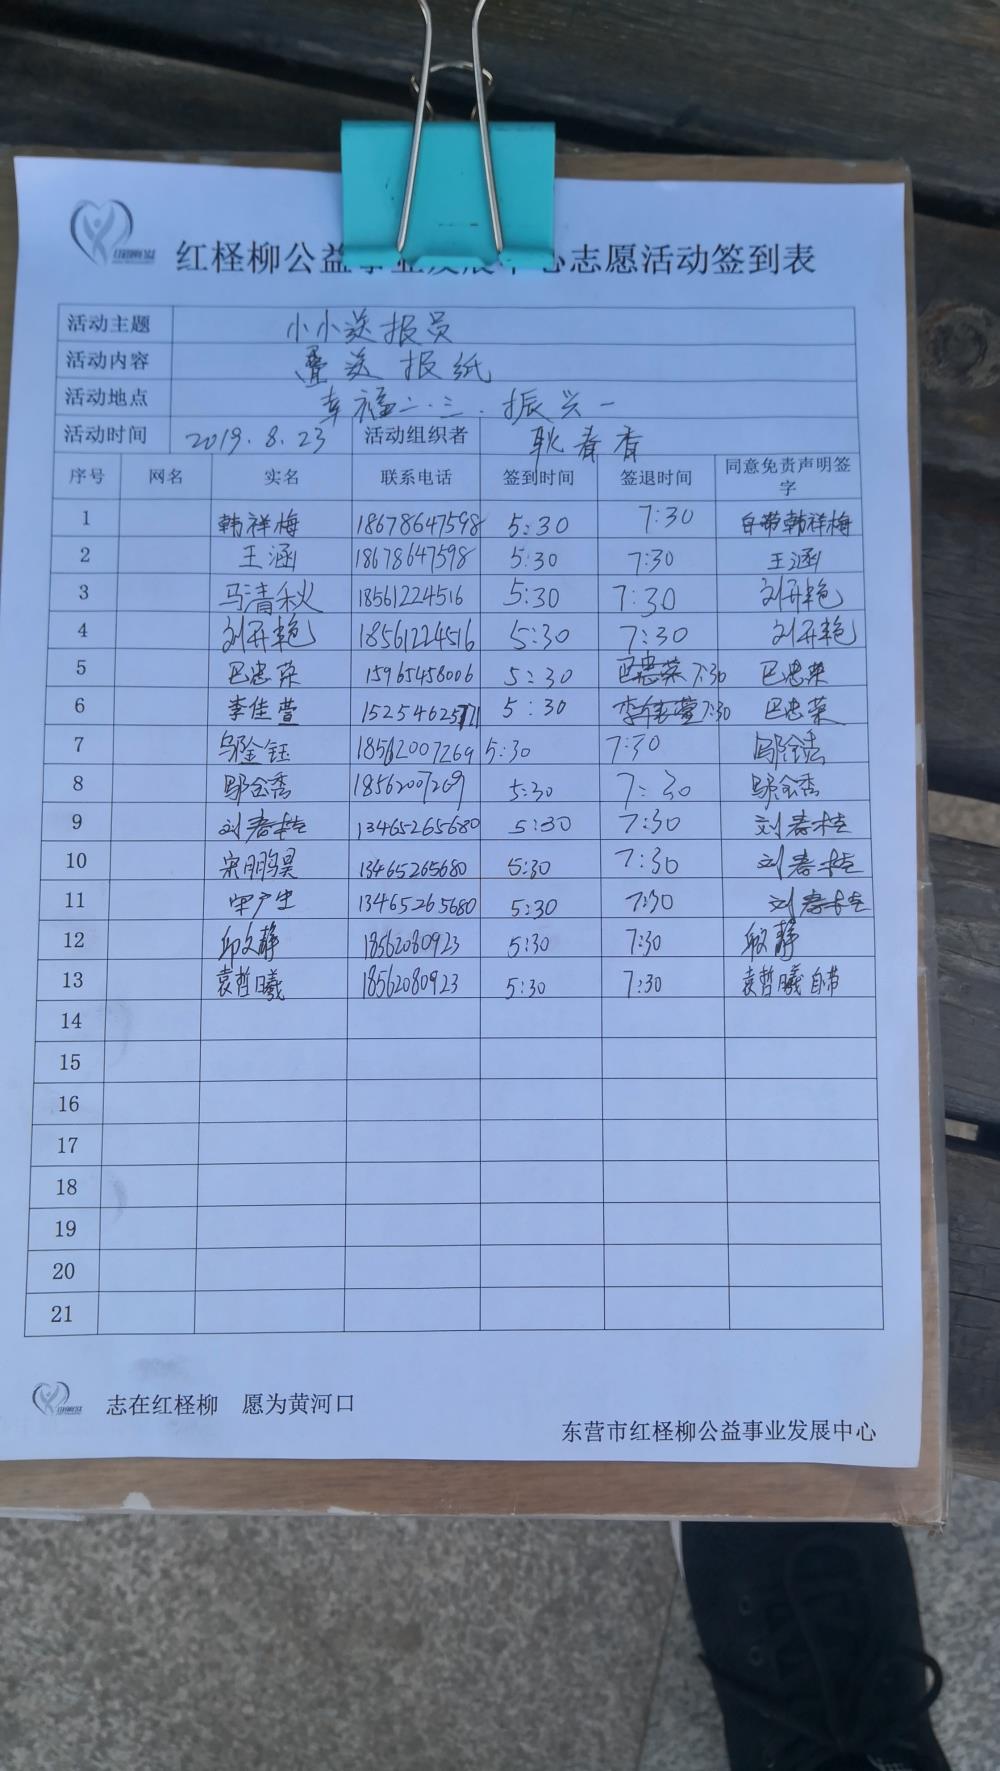 红柽柳公益事业发展中心志愿活动签到表
活动主题 小小送报员
活动内容 叠送报纸
活动地点 幸福二.三.振兴一
活动时间 2019.8.23 活动组织者 耿春香
序号 网名 实名 联系电话 签到时间 签退时间 同意免责声明签字
1 韩祥梅 18678647598 5:30 7:30 韩祥梅
2 王涵 18678647598 5:30 7:30 王涵
3 马清秋 18561224516 5:30 7:30 刘开艳
4 刘开艳 18561224516 5:30 7:30 刘开艳
5 巴忠荣 15965458006 5:30 7:30 巴忠荣
6 李佳萱 5:30 7:30 巴忠荣
7 邬金钰 18562007269 5:30 7:30 邬金秀
8 邬金秀 18562007269 5:30 7:30 邬金秀
9 刘春桂 13465265680 5:30 7:30 刘春桂
10 宋鹏昊 13465265680 5:30 7:30 刘春桂
11 13465265680 5:30 7:30 刘春桂
12 邱文静 18562080923 5:30 7:30 邱文静
13 袁哲曦 18562080923 5:30 7:30 袁哲曦 自带
14
15
16
17
18
19
20
21
志在红柽柳 愿为黄河口
东营市红柽柳公益事业发展中心